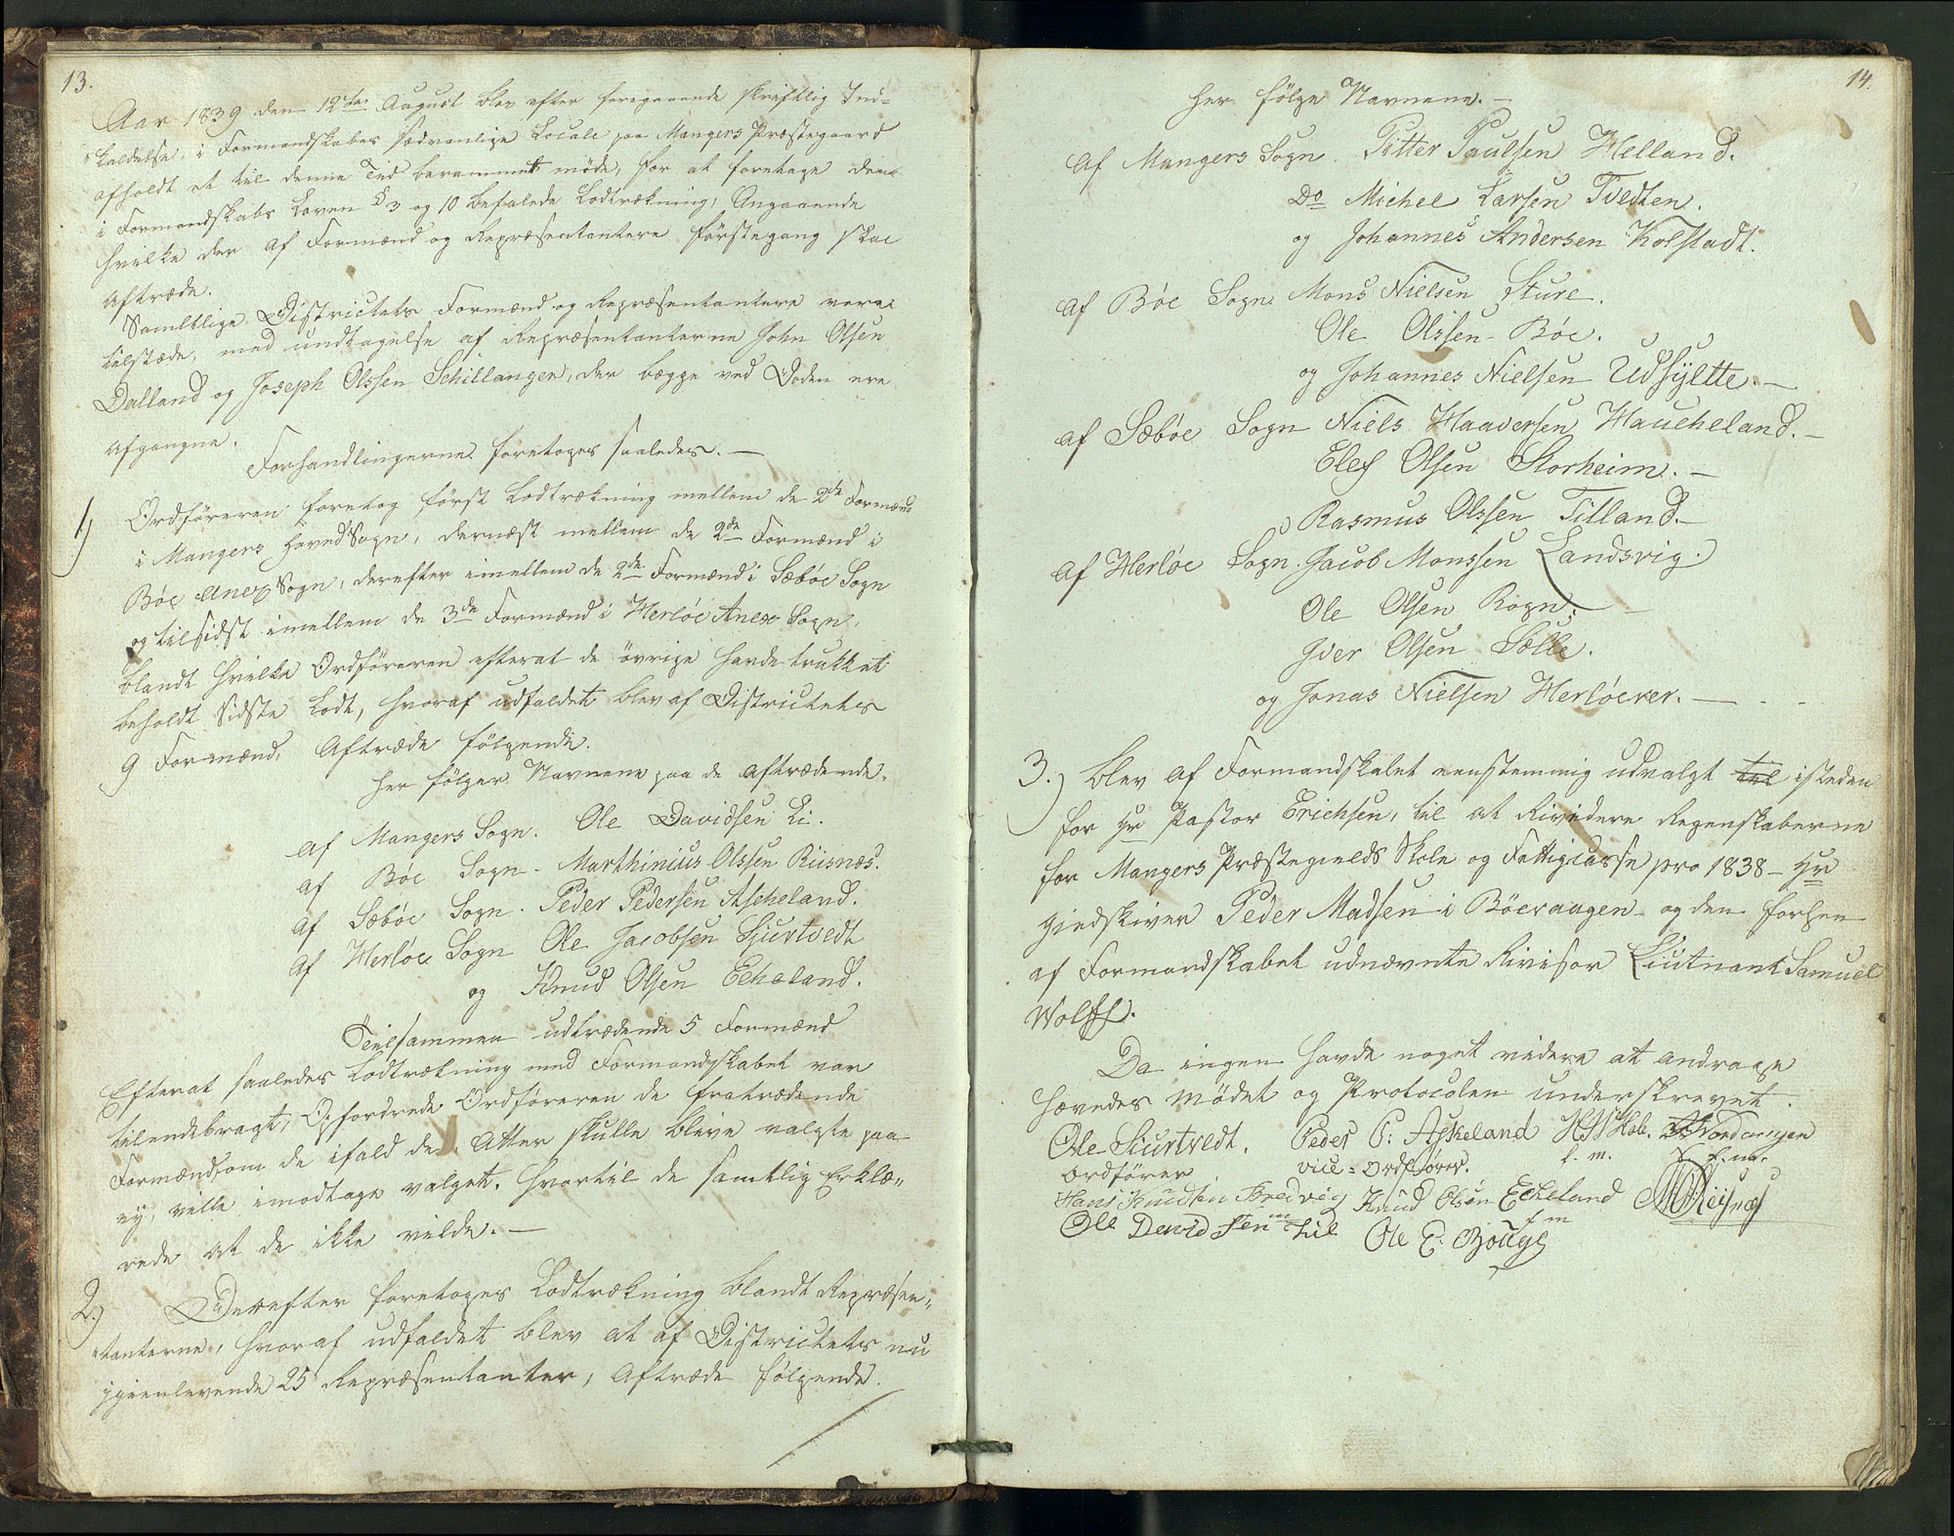 13.
Aar 1839 den 12te August blev efter foregaaende skriftlig Ind-
kaldelse, i Formandskabes sædvanlige Locale paa Mangers Præstegaard
afholdt et til denne Tid berammet möde, for at foretage den
i Formandskabs Loven § 3 og 10 befalede Lodtrækning, Angaaende
hvilke der af Formænd og Repræsentantere förstegang skal
Aftræde.
Samtlige Districtets Formænd og Repræsentantere vare
tilstæde, med undtagelse af Repræsentanterne John Olsen
Dalland og Joseph Olssen Schillangen, der begge ved Döden ere
afgangne.
Forhandlingerne foretoges saaledes. —
1) Ordföreren foretog först Lodtrækning mellem de 2de Formænd
i Mangers HovedSogn, dernæst mellem de 2de Formænd i
Böe Anex Sogn, derefter imellem de 2de Formænd i Sæböe Sogn
og tilsidst imellem de 3de Formænd i Herlöe Anex Sogn,
blandt hvilke Ordföreren efterat de övrige havde trukket
beholdt sidste Lodt, hvoraf udfaldet blev af Districtets
9 Formænd, Aftræde fölgende.
Her fölger Navnene paa de aftrædende.
Af Mangers Sogn. Ole Davidsen Li.
Af Böe Sogn - Marthinius Olssen Riisnæs.
Af Sæböe Sogn. Peder Pedersen Ascheland.
Af Herlöe Sogn Ole Jacobsen Sjurtvedt
og Knud Olsen Echeland.
Tilsammen udtrædende 5 Formænd
Efterat saaledes Lodtrækning med Formandskabet var
tilendebragt, Opfordrede Ordföreren de fratrædende
Formænd, om de ifald de Atter skulle blive valgte paa
ny, ville imodtage valget. Hvortil de samtlig Erklæ-
rede at de ikke vilde. —
2.) Derefter foretoges Lodtrækning blandt Repræsen-
tanterne, hvoraf udfaldet blev at af Districtets nu
igienlevende 25 Repræsentanter, Aftræde fölgende.
14.
Her fölge Navnene. —
Af Mangers Sogn. Pitter Paulsen Helland.
Do Michel Larsen Tvedten.
og Johannes Andersen Kolstadt.
Af Böe Sogn Mons Nielsen Sture.
Ole Olssen Böe.
og Johannes Nielsen Udsyltte. —
Af Sæböe Sogn Niels Haaversen Haucheland. —
Elef Olsen Storheim. —
Rasmus Olssen Tilland. —
Af Herlöe Sogn. Jacob Monssen Landsvig.
Ole Olsen Rogn. —
Iver Olsen Sælle.
og Jonas Nielsen Herlöever. —
3.) Blev af Formandskabet eenstemmig udvalgt til isteden
for Hr Pastor Erichsen, til at Rividere Regenskaberne
for Mangers Præstegields Skole og Fattigcasse pro 1838 - Hr
Giedskiver Peder Madsen i Böevaagen og den forhen
af Formandskabet udnævnte Rivisor Liutnant Samuel
Wolff.
Da ingen havde noget videre at andrage
hævedes mödet og Protocolen underskrevet.
Ole Siurtvedt. Peder P: Askeland
Ordförer vice-Ordförer. f. m. f. m.
Hans Knudsen Bredvig Knud Olsen Echeland
f m
Ole David sen Lil Ole E.